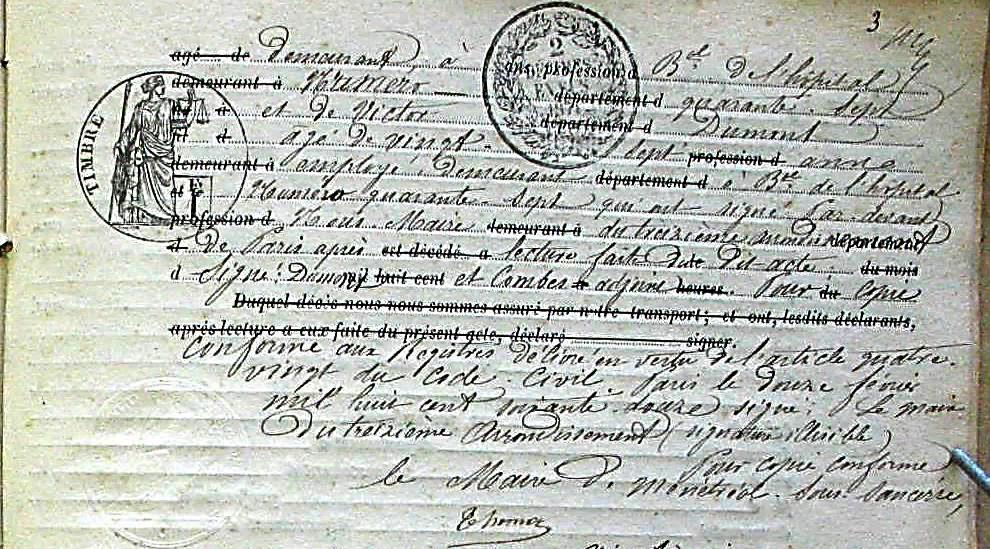 3
TIMBRE
2
agé de Demeurant à ans, profession d Bd. De l'hôpital
demeurant à Numéro département d quarante-sept
et d et de Victor département d Dumont
et d agé de vingt-sept profession d anné
demeurant à employé, Demeurant département d à Bd. de l'hôpital
et le Numéro quarante-sept qui ont signé Par-devant
profession d Nous Maire demeurant à du treizième arrondissement département
d de Paris après est décédé a lecture faite du dit acte du mois
d Signé: Dumont mil huit cent et Combes à adjoint heures. Pour du Copie
Duquel décès nous nous sommes assuré par notre transport; et ont, lesdits déclarants,
après lecture a eux faite du présent acte, déclaré signer.
Conforme aux Registres Délivré en vertu de l'article quatre-
vingt du Code Civil. Paris le Douze février
mil huit cent soixante-douze signé: Le maire
Du treizième Arrondissement (signature illisible)
Pour copie conforme
le Maire De Ménétréol-Sous-Sancerre,